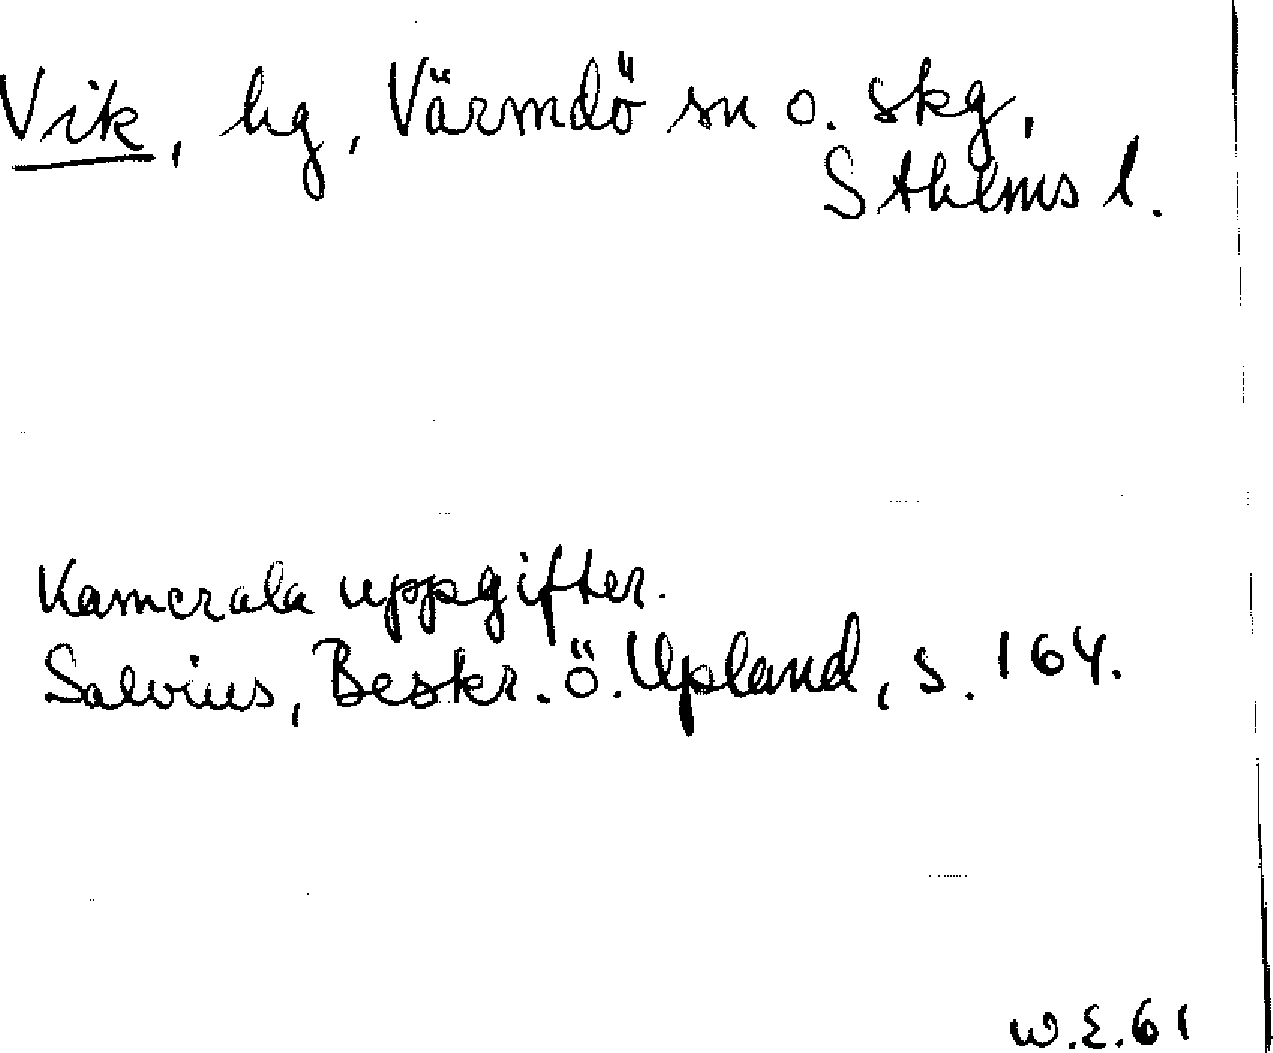 Vik, hg, Värmdö sn o. skg,
Sthlms l.
Kamerala uppgifter.
Salvius, Beskr. ö. Upland, s. 164.
W.E.61